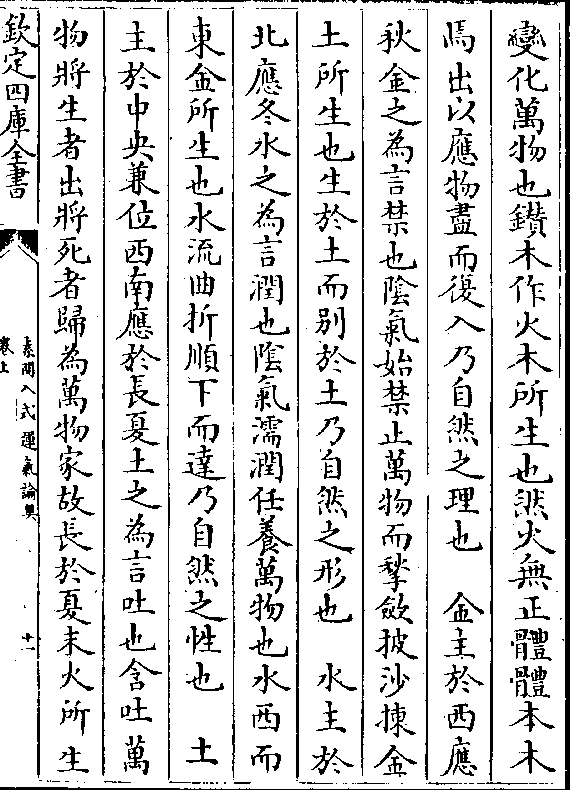 變化萬物也鑚木作火木所生也然火無正體體本木
焉出以應物盡而復入乃自然之理也　金主於西應
秋金之為言禁也陰氣始禁止萬物而揫斂披沙揀金
土所生也生於土而别於土乃自然之形也　水主於
北應冬水之為言潤也陰氣濡潤任養萬物也水西而
東金所生也水流曲折順下而達乃自然之性也　土
主於中央兼位西南應於長夏土之為言吐也含吐萬
物將生者出將死者歸為萬物家故長於夏末火所生
欽定四庫全書
素問入式運氣論奥
卷上
十一